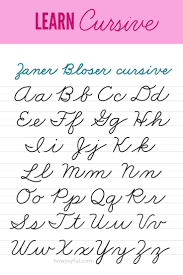 LEARN Cursive
Zaner Bloser cursive
Aa Bb Cc Dd
Ee Ff Gg Hh
Ii Jj Kk
Ll Mm Nn
Oo Pp Qq Rr
Ss Tt Uu Vv
Ww Xx Yy Zz